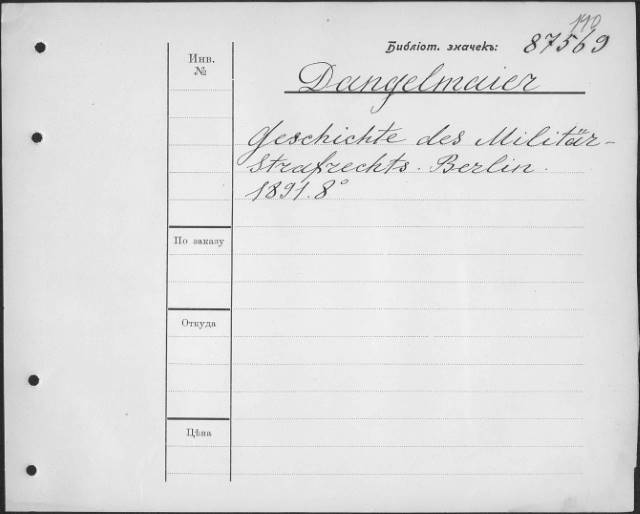 190
Библіот. значекъ: 87569
Инв.
№
Dangelmaier
Geschichte des Militär-
strafrechts. Berlin.
1891. 8°
По заказу
Откуда
Цѣна